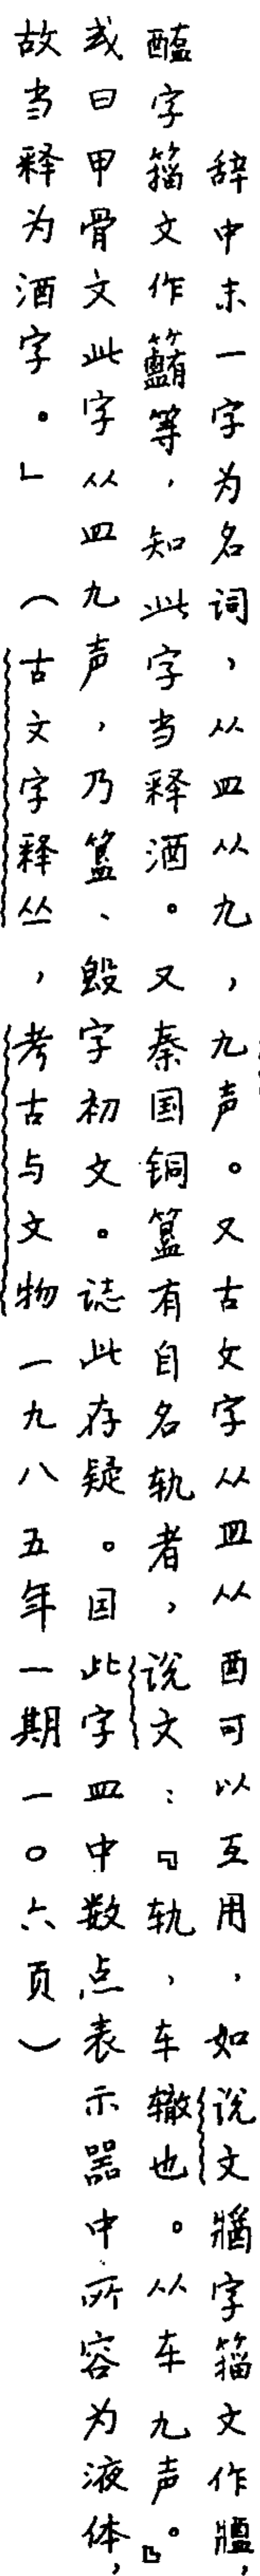 辞中末一字为名词，从皿从九，九声。又古文字从皿从酉可以互用，如说文牆字籀文作牆，
醢字籀文作等，知此字当释酒。又秦国铜簋有自名轨者，说文：『轨，车辙也。从车九声。』
或曰甲骨文此字从皿九声，乃簋、毁字初文。誌此存疑。因此字皿中数点表示器中所容为液体，
故当释为酒字。」（古文字释丛，考古与文物一九八五年一期一〇六页）